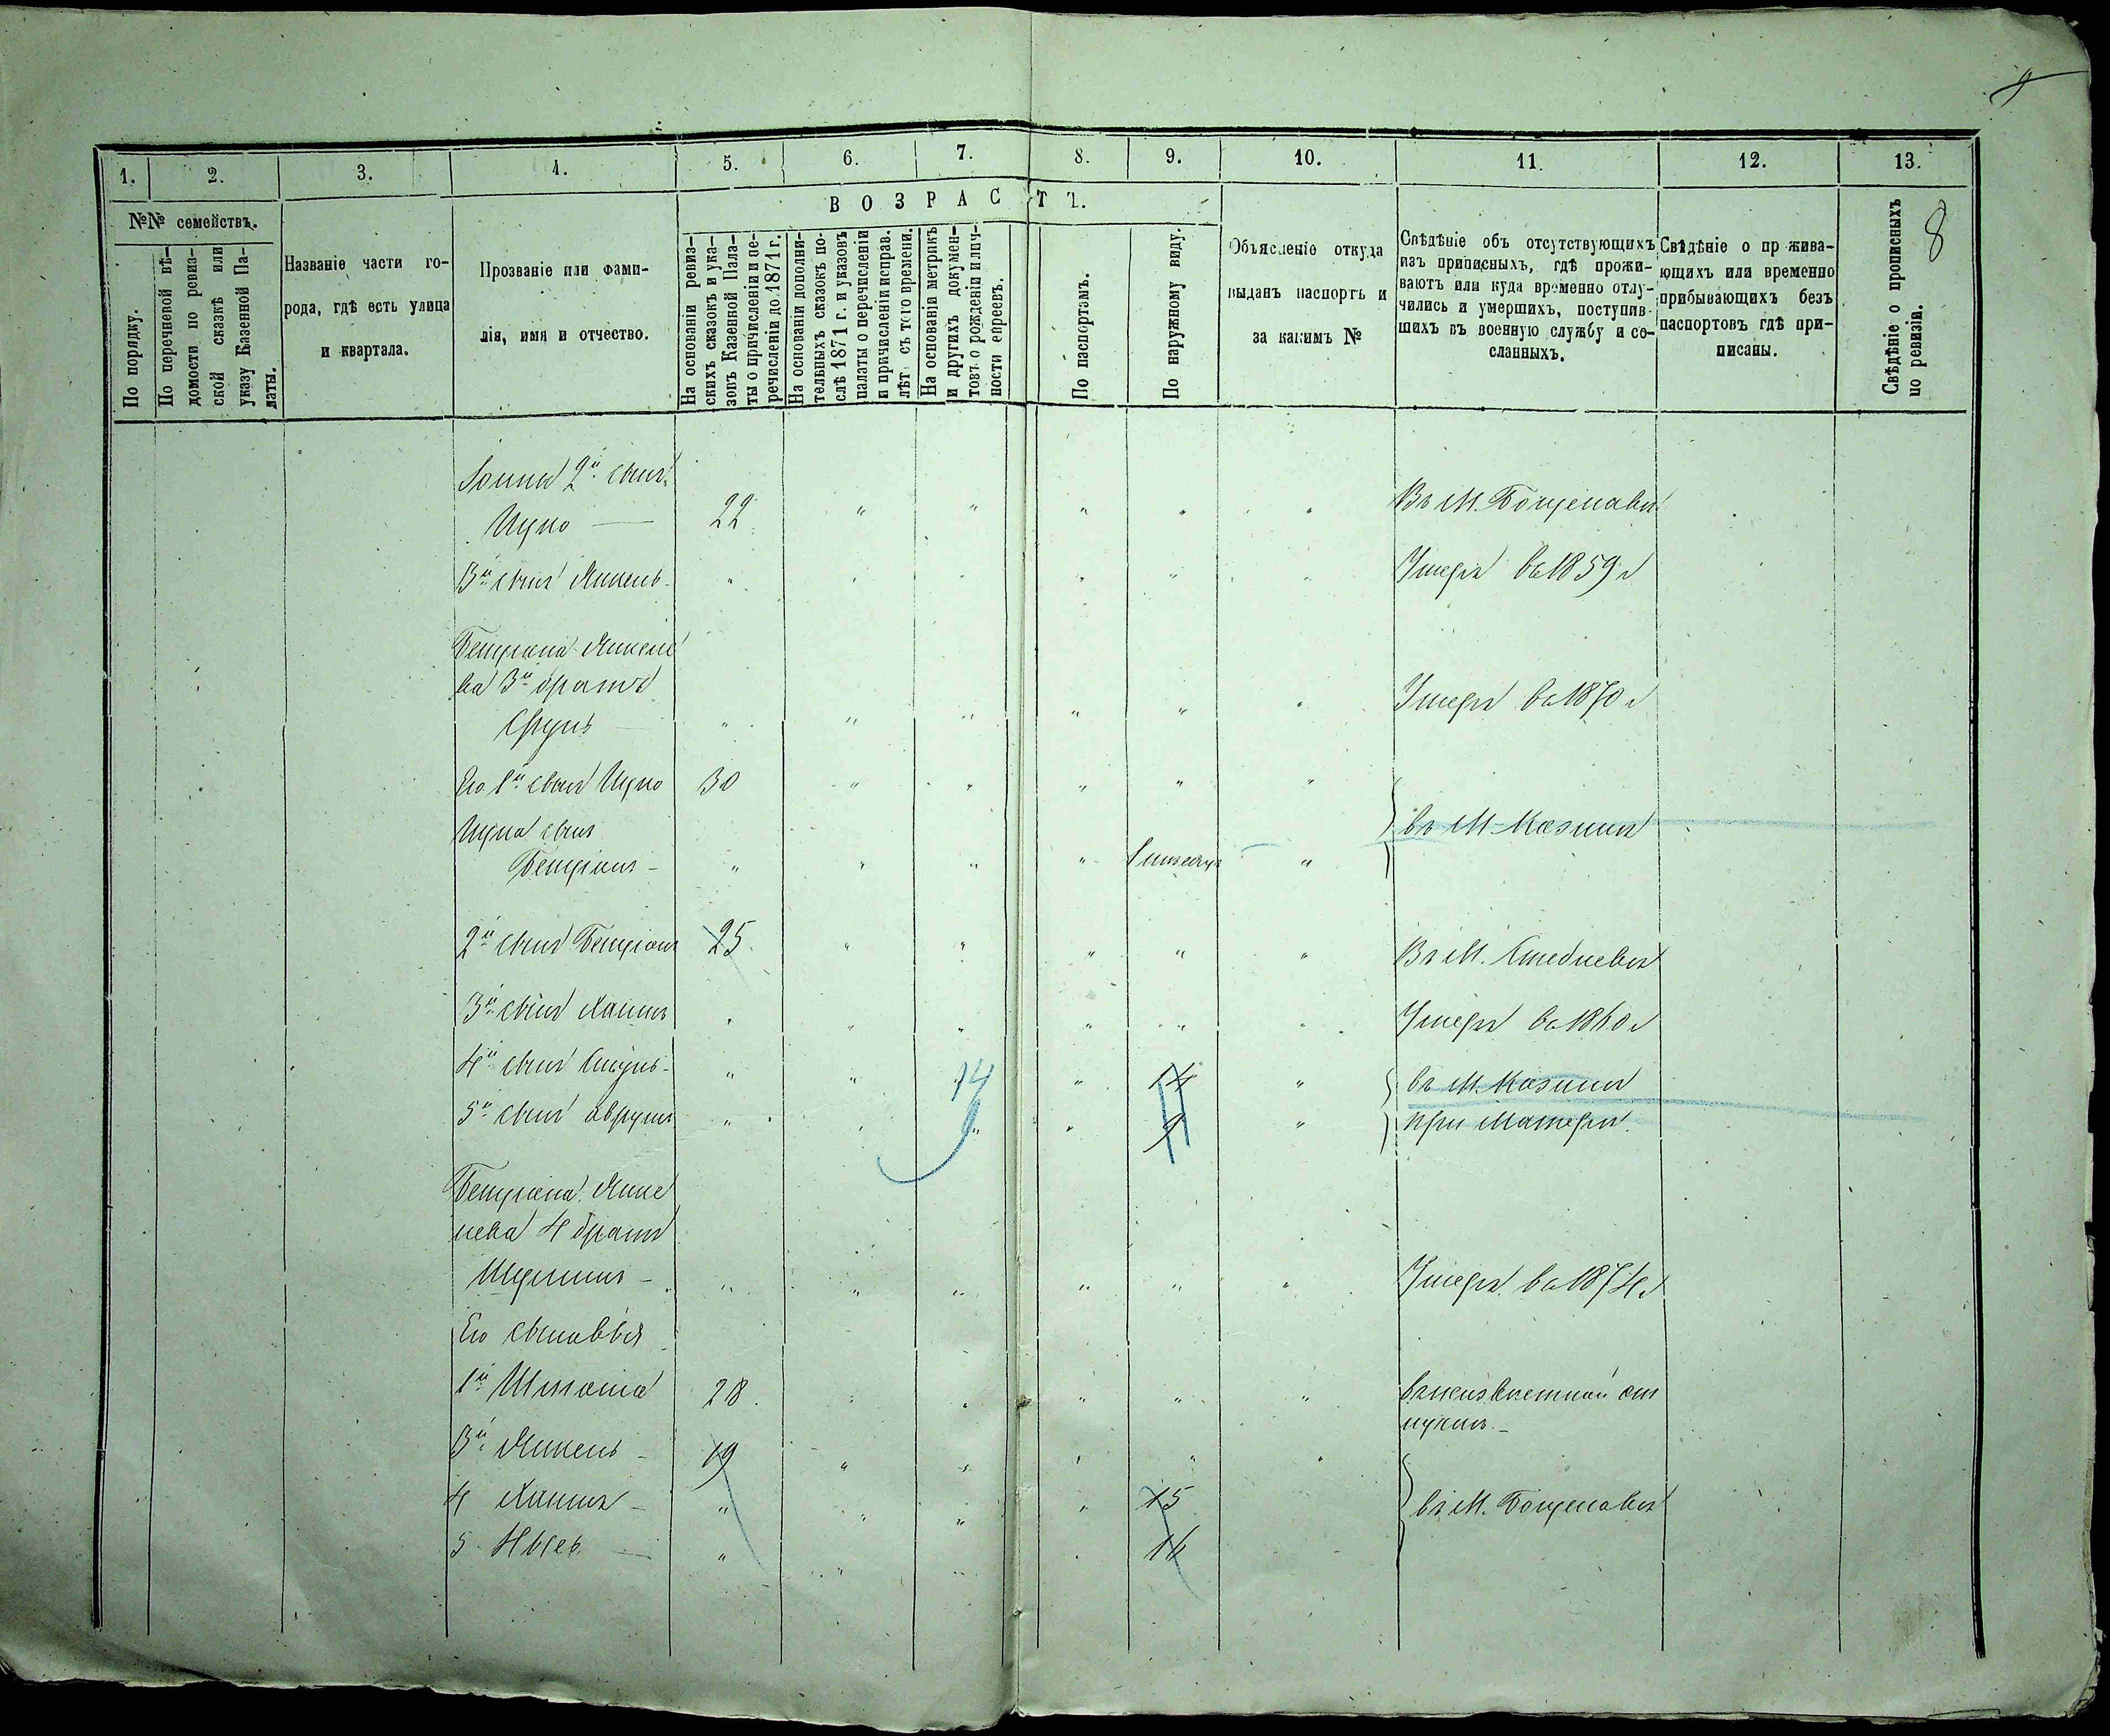 9
1. 2. 3. 4. 5. 6. 7. 8. 9. 10. 11. 12. 13.
№№ семействъ.
По порядку.
По перечневой вѣ-
домости по ревиз-
ской сказкѣ или
указу Казенной Па-
латы.
Названіе части го-
рода, гдѣ есть улица
и квартала.
Прозваніе или фами-
лія, имя и отчество.
ВОЗРАСТЪ.
На основаніи ревиз-
скихъ сказокъ и ука-
зовъ Казенной Пала-
ты о причисленіи и пе-
речисленіи до 1871 г.
На основаніи дополни-
тельныхъ сказокъ по-
слѣ 1871 г. и указовъ
палаты о перечисленіи
и причисленіи исправ.
лѣт. съ того времени.
На основаніи метрикъ
и другихъ докумен-
товъ о рожденіи и лич-
ности евреевъ.
По паспортамъ.
По наружному виду.
Объясненіе откуда
выданъ паспортъ и
за какимъ №
Свѣдѣніе объ отсутствующихъ
изъ приписныхъ, гдѣ прожи-
ваютъ или куда временно отлу-
чились и умершихъ, поступив-
шихъ въ военную службу и со-
сланныхъ.
Свѣдѣніе о прожива-
ющихъ или временно
прибывающихъ безъ
паспортовъ гдѣ при-
писаны.
Свѣдѣніе о прописныхъ
по ревизіи.
8
2й сынъ
Ицко — 22 " " " " "
3й сынъ Янкель - " " " " " " Умеръ въ 1859 г
Бенціона Янкеле
ва 3й братъ
Сруль " " " " " " Умеръ въ 1870 г
Его 1й сынъ Ицко 30 " " " " "
Ицка сынъ въ М.
Бенціонъ - " " " " "
2й сынъ Бенціонъ 25 " " " " " Въ М.
3й сынъ Хаимъ " " " " " " Умеръ въ 1860 г
4й сынъ " " 14 " 14 " въ М.
5й сынъ Аврумъ " " 9 " 9 " при Матери.
Бенціона Янке
лева 4 братъ
" " " " " " Умеръ въ 1874 г
Его сыновья
1й Шлiома 28 " " " " " въ неизвѣстной от
лучкѣ. -
3й Янкель - 19 " " " " "
4 Хаимъ - " " " " 15 въ М.
5 — " " " " 14